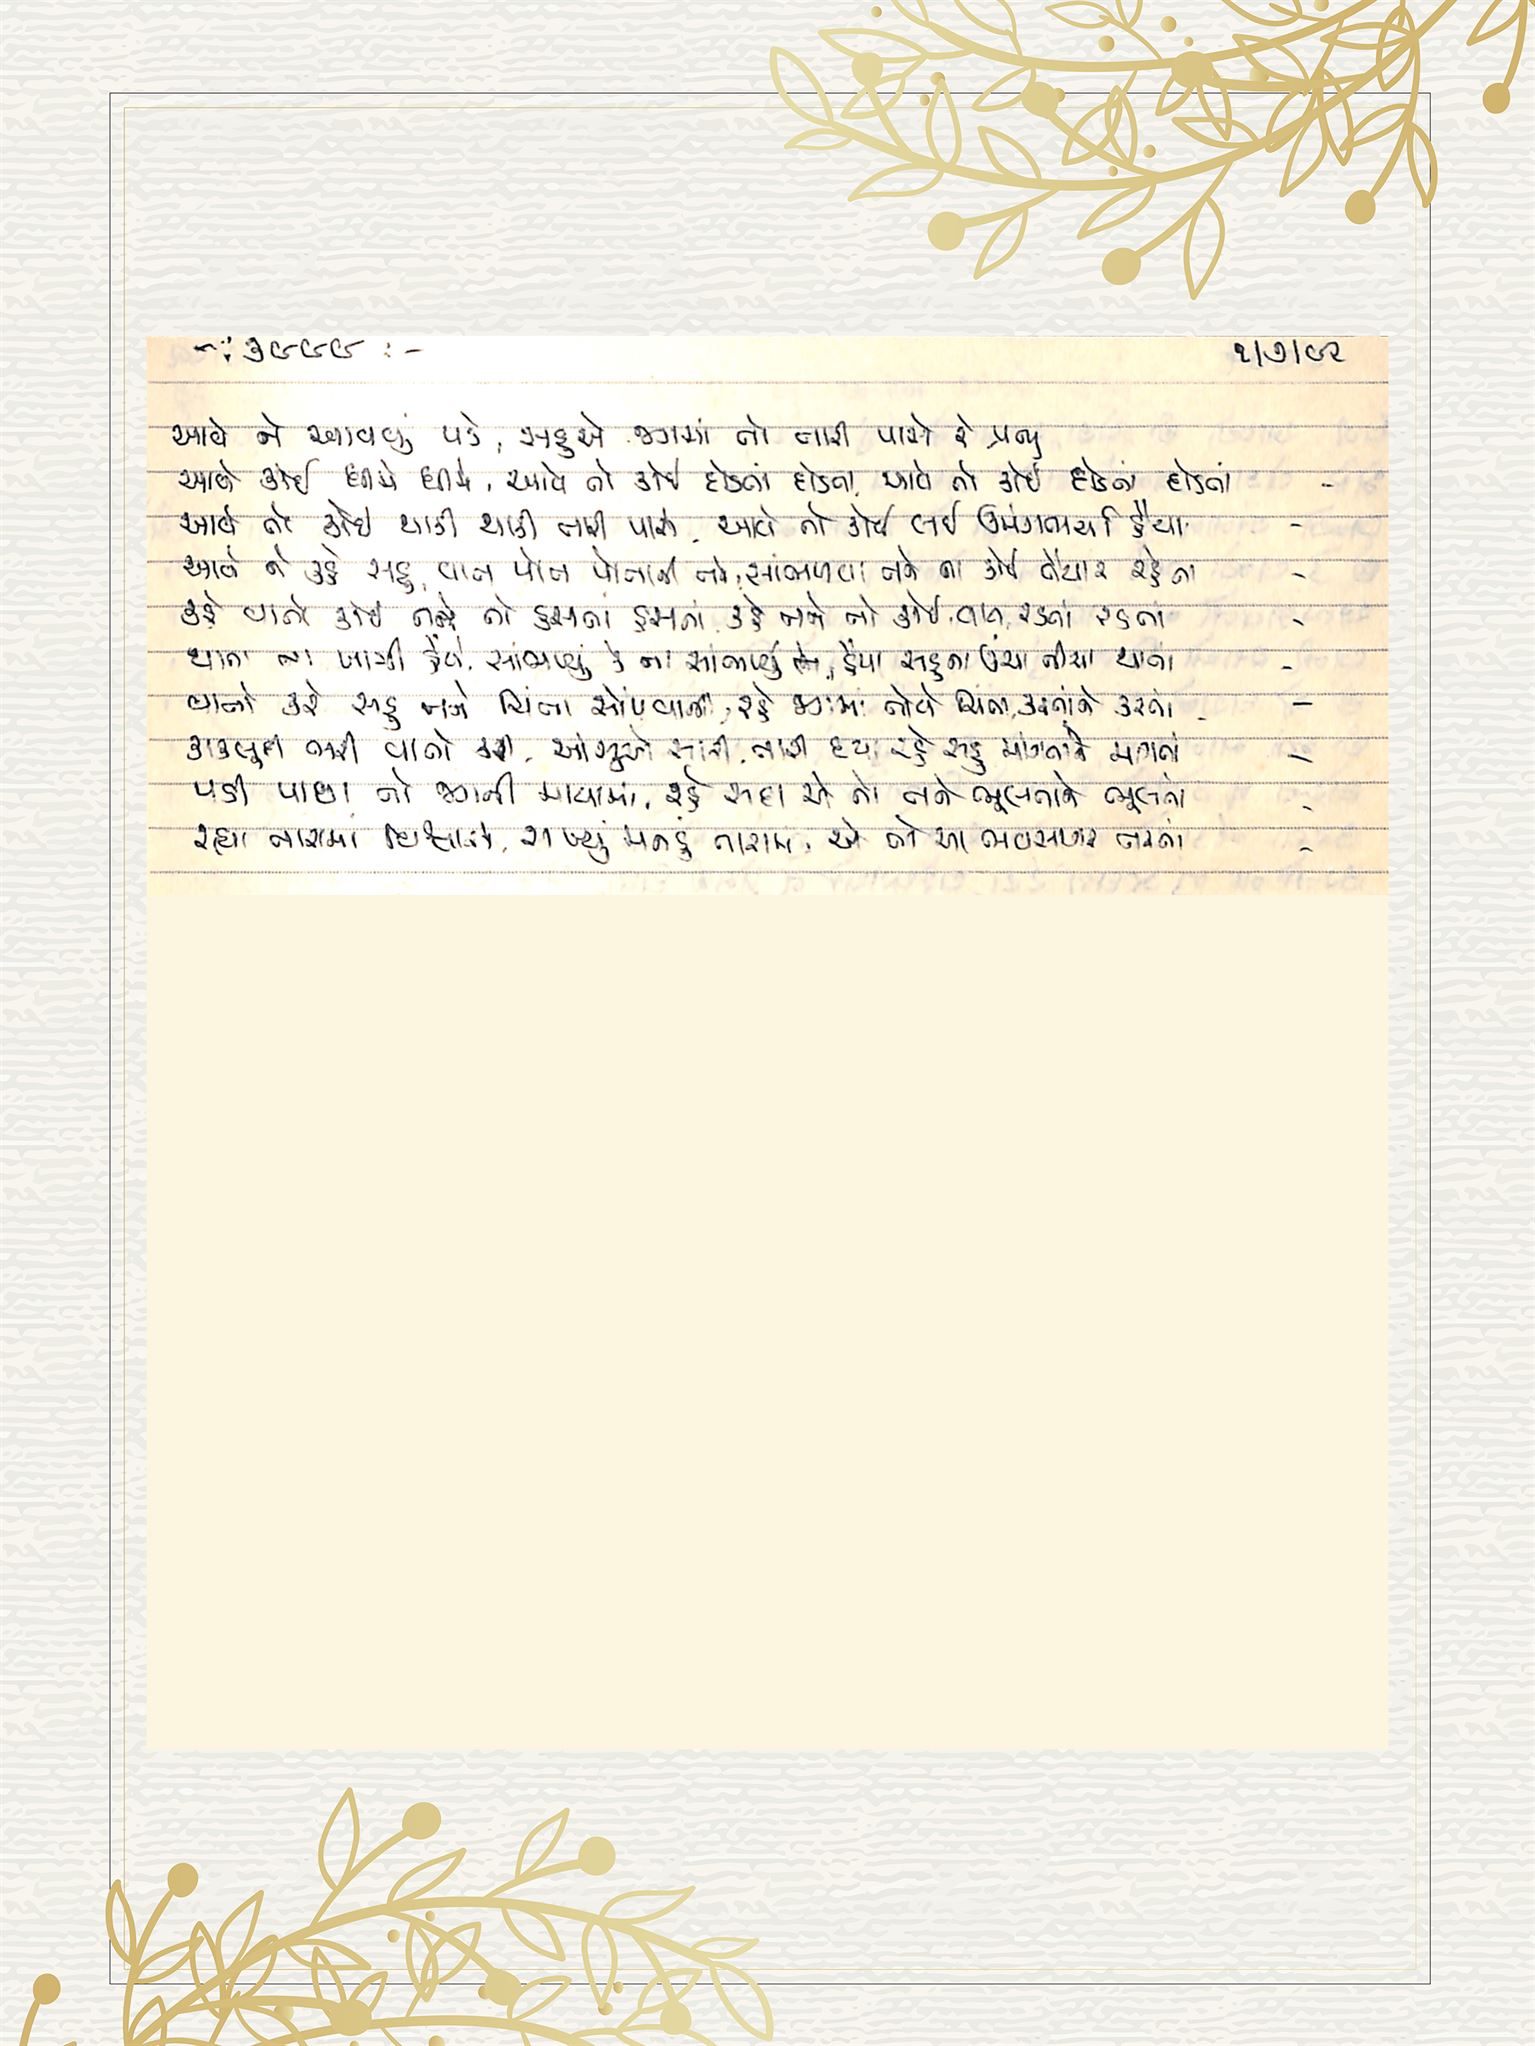 -: ૩૯૯૯ :- ૧/૭/૯૨
આવે ને આવવું પડે, સહુએ જગમાં તો તારી પાસે રે પ્રભુ
આવે કોઈ ધીમે ધીમે, આવે તો કોઈ દોડતાં દોડતા, આવે તો કોઈ દોડતાં દોડતાં -
આવે તો કોઈ થાકી થાકી તારી પાસે, આવે તો કોઈ લઈ ઉમંગભર્યા હૈયા -
આવે ને કહે સહુ, વાત પોત પોતાની તને, સાંભળવા તને ના કોઈ તૈયાર રહેતા -
કહે વાતો કોઈ તને તો હસતાં હસતાં, કહે તને તો કોઈ વાત, રડતાં રડતાં -
થાતા ના ખાલી હૈયે, સાંભળ્યું કે ના સાંભળ્યું તેં, હૈયા સહુના ઉંચા નીચા થાતાં -
વાતો કરે સહુ તને ચિંતા સોંપવાની, રહે જગમાં તોયે ચિંતા, કરતાંને કરતાં -
કાકલૂદી ભરી વાતો કરી, આંસુઓ સારી, તારી દયા રહે સહુ માંગતાને માંગતાં -
પડી પાછા તો જગની માયામાં, રહે સદા એ તો તને ભૂલતાને ભૂલતાં -
રહ્યા તારામાં વિશ્વાસે, રાખ્યું મનડું તારામાં, એ તો આ ભવસાગર તરતાં -